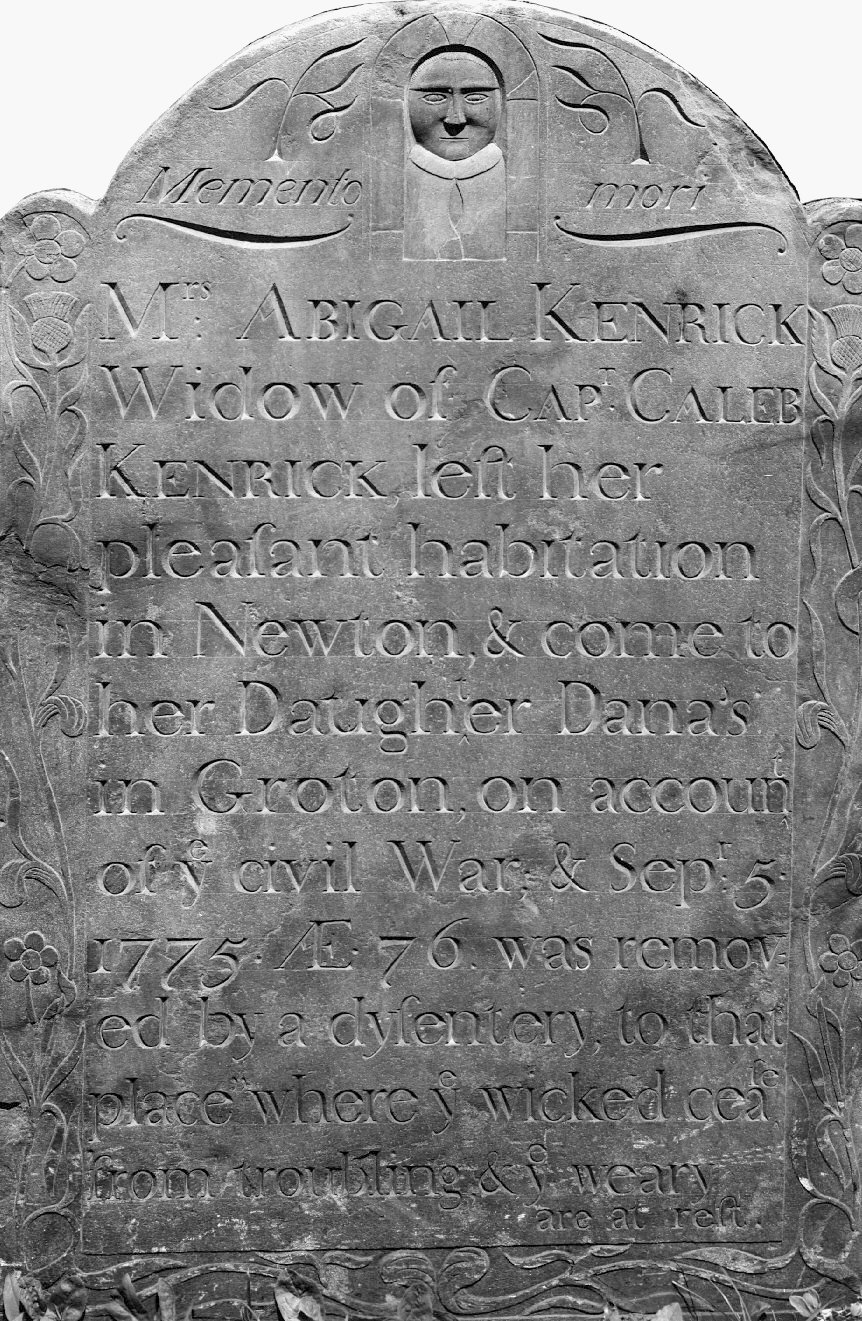 Memento mori
Mrs. ABIGAIL KENRICK
Widow of CAPT. CALEB
KENRICK, left her
pleaſant habitation
in Newton, & come to
her Daughter Dana's
in Groton, on account
of ye civil War; & Sept. 5.
1775. Æ. 76. was remov-
ed by a dyſentery, to that
place "where ye wicked ceaſe
from troubling, & ye weary
are at reſt.